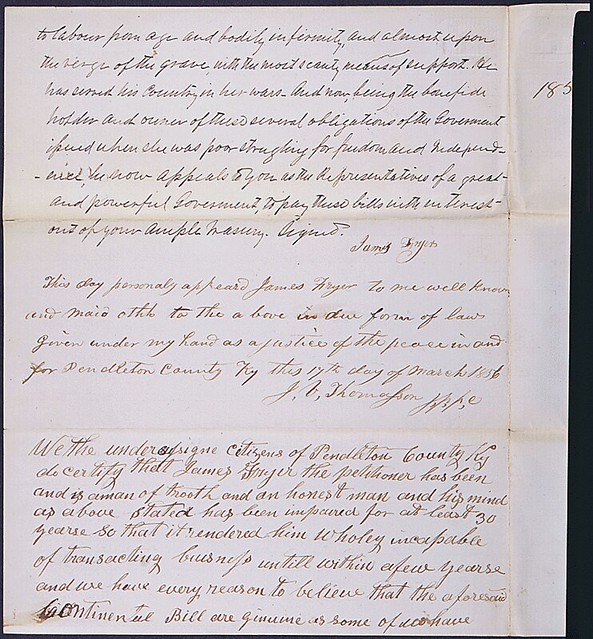 to labour from age and bodily infirmity, and almost upon
the verge of the grave, with the most scanty means of support. He
has served his Country in her wars. And now, being the bonefide
holder and owner of these several obligations of the Goverment
issued when she was poor strugling for freedom and Independ-
-ince, he now appeals to you as the Representatives of a great
and powerful Goverment, to pay these bills with interest
out of your ample Treasury. Signed.
James Fryer
185
This day personaly appeard James Fryer to me well known
and maid othh to the above in due form of law
given under my hand as a justice of the peace in and
for Pendleton County Ky this 17th day of March 1856
J. V. Thomasson
We the undersigne Citizens of Pendleton County Ky
do certify that James Fryer the petitioner has been
and is a man of trooth and an honest man and his mind
as above stated has been impared for at least 30
yearse so that it rendered him wholey incapable
of transacting buisness untill within a few yearse
and we have every reason to believe that the aforesaid
Continental Bill are ginuine as some of us have